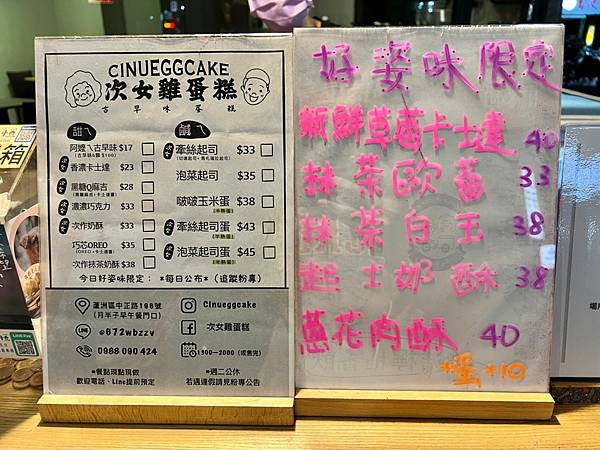 CINUEGGCAKE
次女雞蛋糕
古早味蛋糕
甜ㄟ
阿嬤ㄟ古早味 $17
香濃卡士達 $23
黑糖Q麻吉 $28
濃濃巧克力 $33
次作奶酥 $33
巧芯OREO $35
次作抹茶奶酥 $38
鹹ㄟ
牽絲起司 $33
泡菜起司 $35
啵啵玉米蛋 $38
(半熟蛋)
牽絲起司蛋 $43
(半熟蛋)
泡菜起司蛋 $45
(半熟蛋)
今日好姿味限定： *每日公布*（追蹤粉專）
蘆洲區中正路196號
(月半子早午餐門口)
@672wbzzv
0988 090 424
Cinueggcake
次女雞蛋糕
1300~2000 (或售完)
*餐點現點現做
歡迎電話、Line提前預定
*週二公休
若遇連假請見粉專公告
好姿味限定
飯鮮草莓卡士達 40
抹茶歐蕾 33
抹茶白玉 38
起士奶酥 38
蔥花肉酥 40
*蛋*10
箱